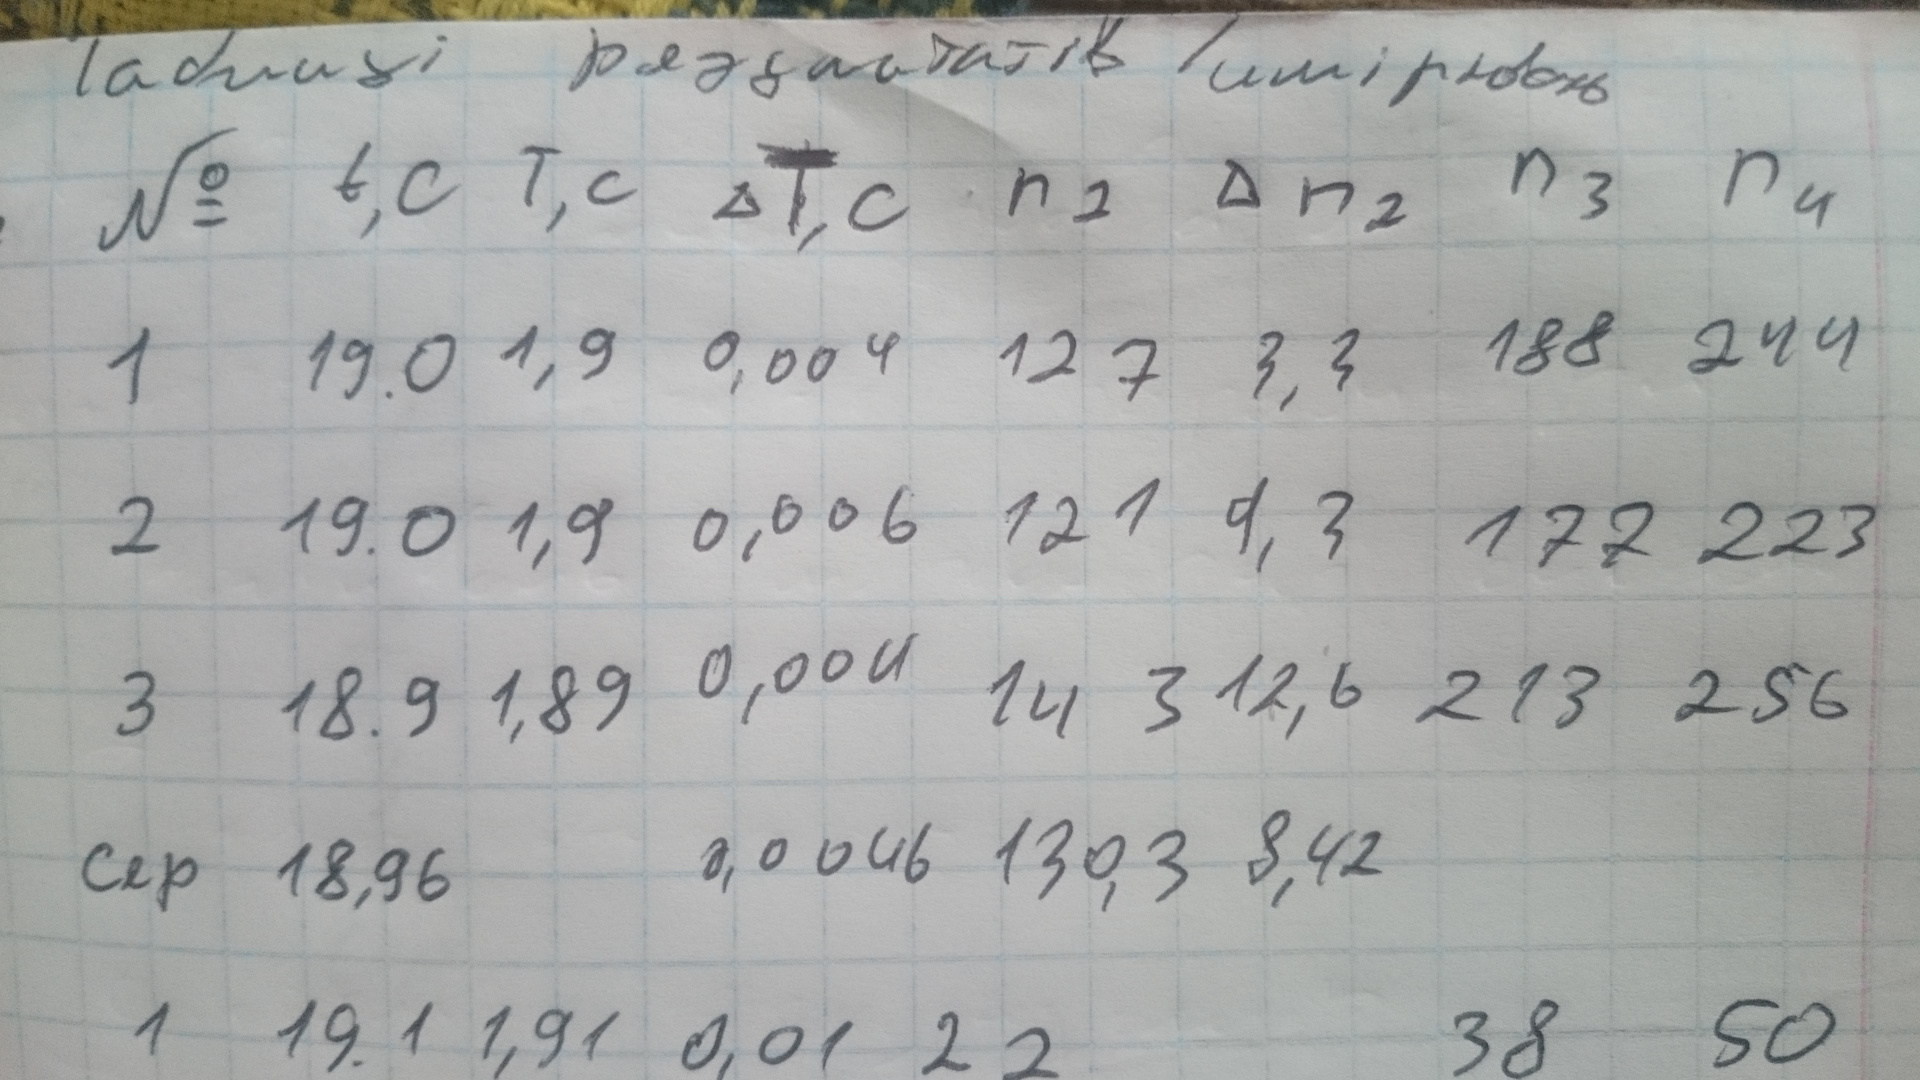 Таблиці результатів вимірювань
№ t,C T,c ΔT,C n2 Δn2 n3 n4
1 19.0 1,9 0,004 127 3,3 188 244
2 19.0 1,9 0,006 121 9,3 177 223
3 18.9 1,89 0,004 143 12,6 213 256
Сер 18,96 0,0046 130,3 8,42
1 19.1 1,91 0,01 22 38 50